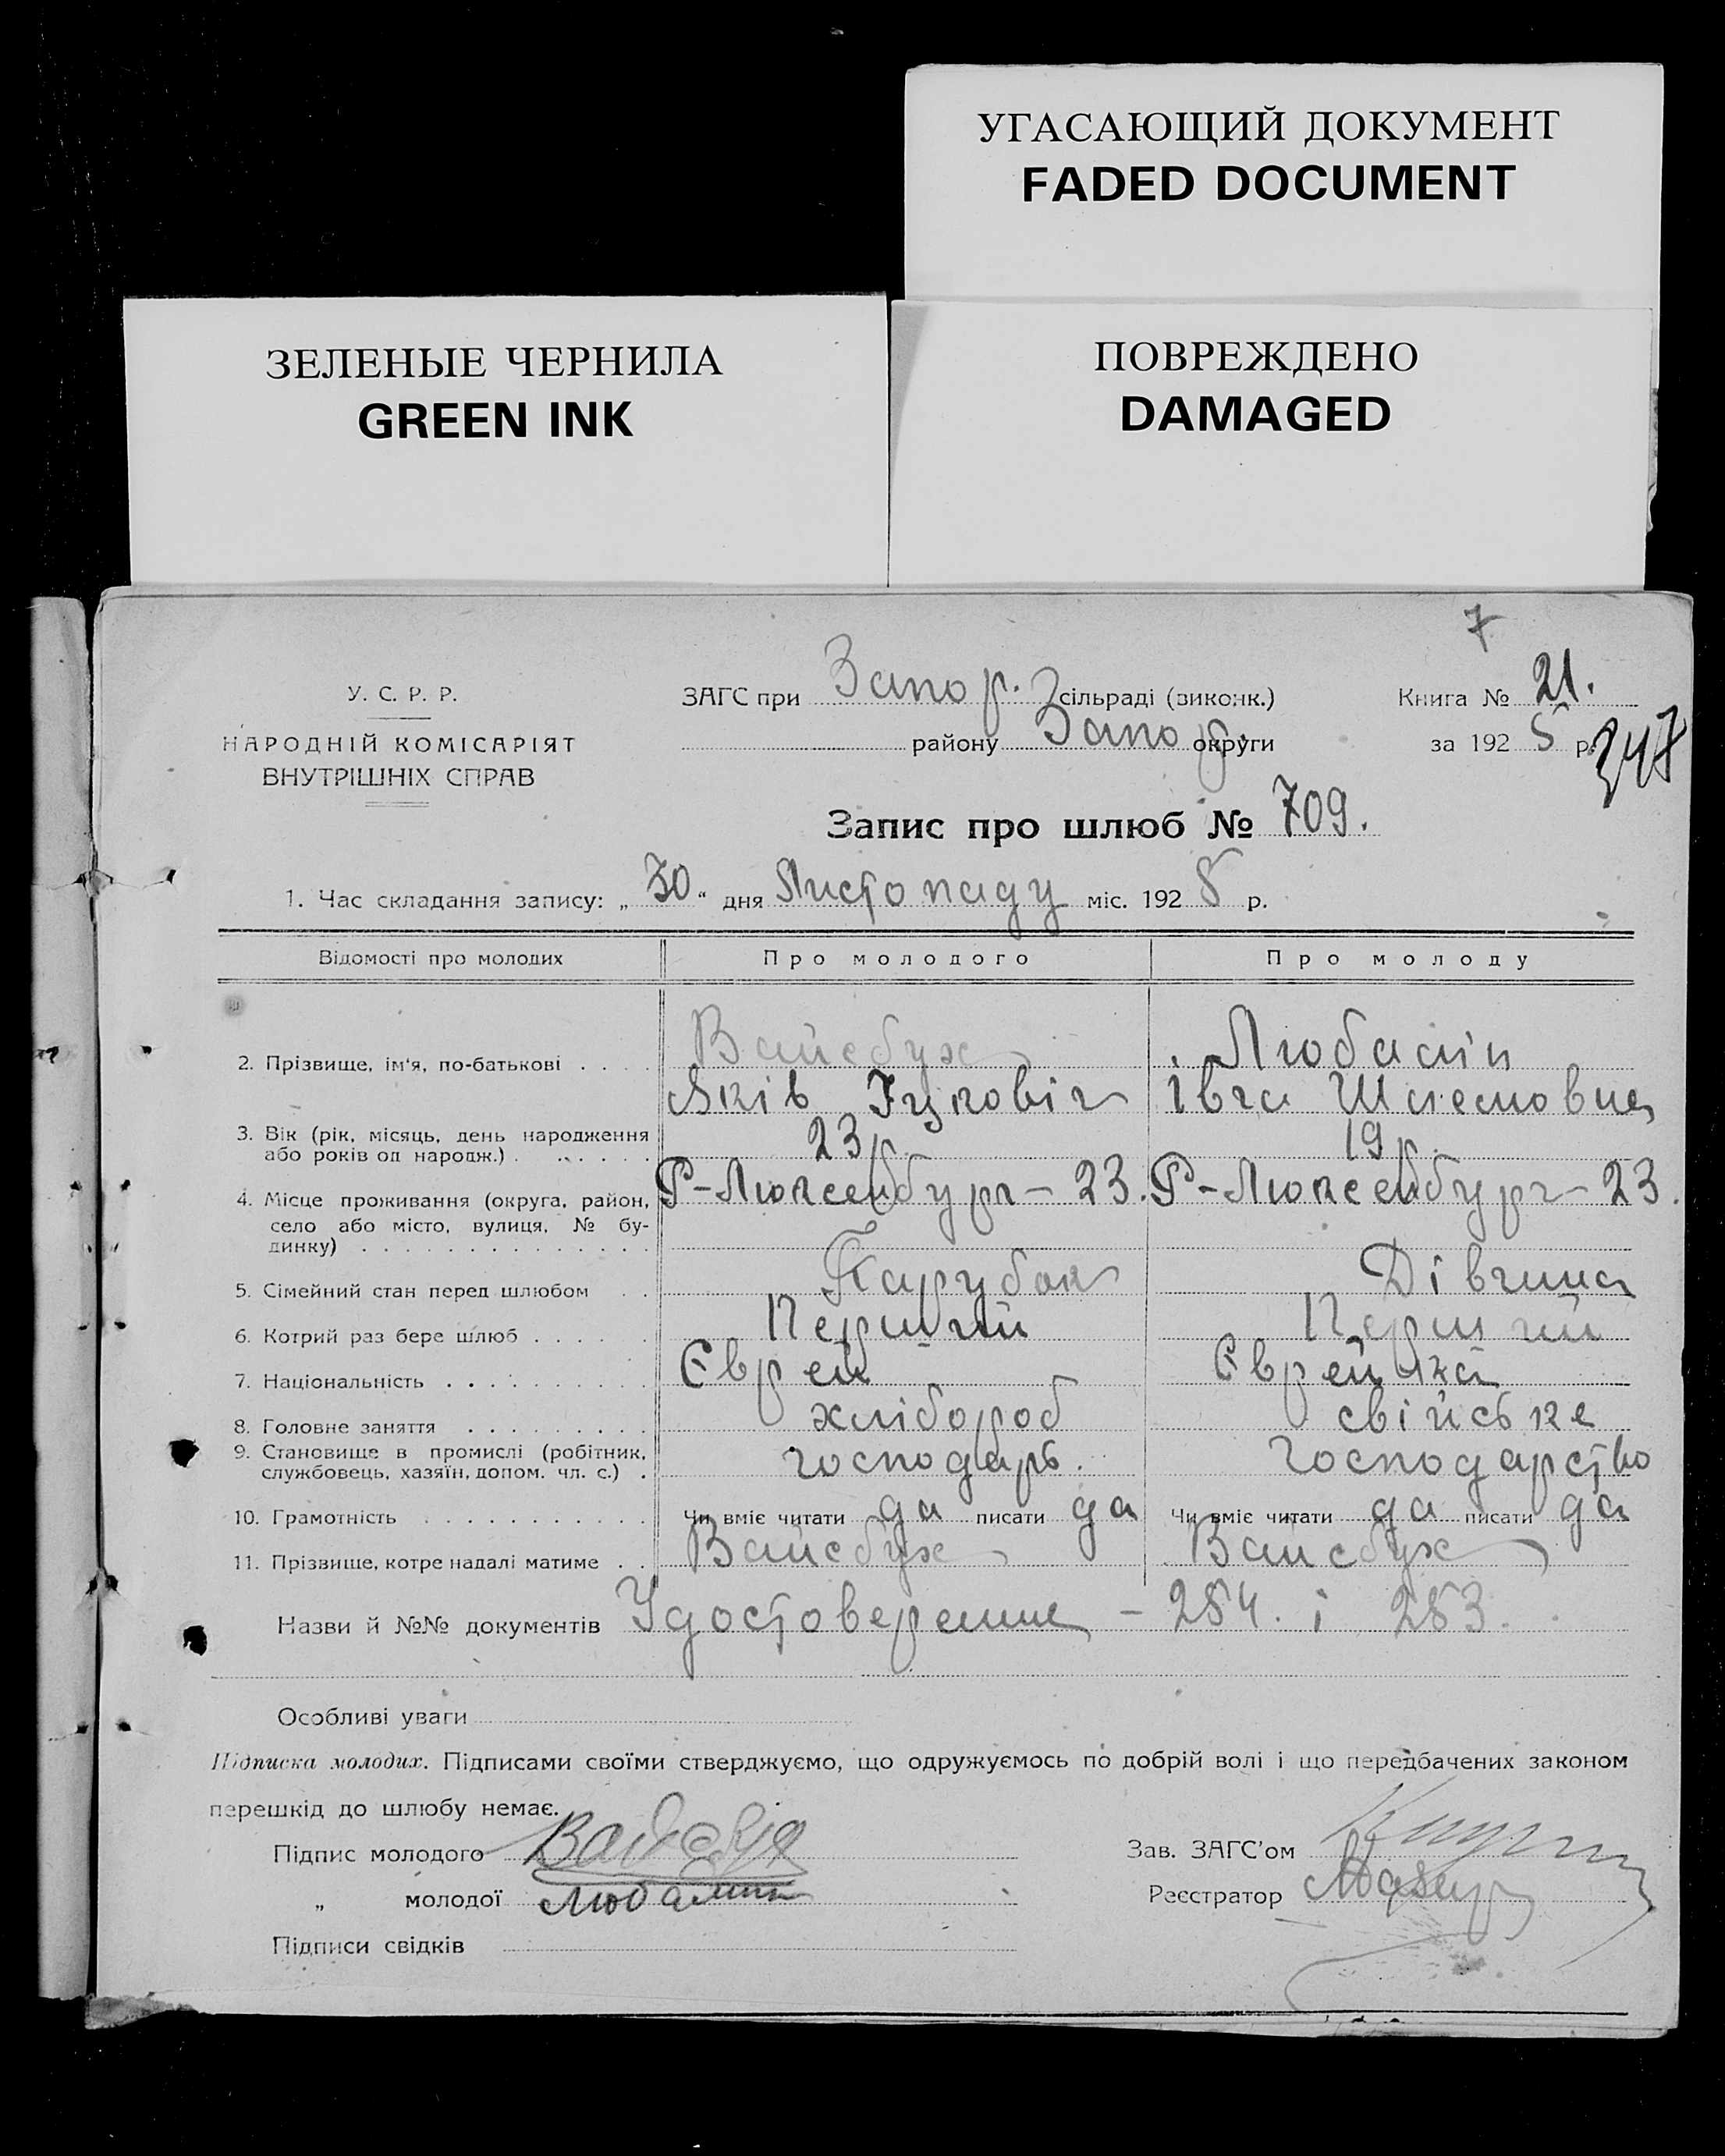 УГАСАЮЩИЙ ДОКУМЕНТ
FADED DOCUMENT
ЗЕЛЕНЫЕ ЧЕРНИЛА
GREEN INK
ПОВРЕЖДЕНО
DAMAGED
7
У. С. Р. Р.
НАРОДНІЙ КОМІСАРІЯТ
ВНУТРІШНІХ СПРАВ
ЗАГС при Запор. сільраді (виконк.)
району Запор. округи
Книга № 21.
за 192 5 р.
347
Запис про шлюб № 709.
1. Час складання запису: „ 30 “ дня Листопаду міс. 192 5 р.
Відомості про молодих Про молодого Про молоду
2. Прізвище, ім'я, по-батькові . . . . Вайсбух Любаслін
Яків Іцковіч Івга
3. Вік (рік, місяць, день народження 23 р. 19 р.
або років од народж.) . . . . . .
4. Місце проживання (округа, район, Р-Люксенбург - 23. Р-Люксенбург - 23.
село або місто, вулиця, № бу-
динку) . . . . . . . . . . . . . .
5. Сімейний стан перед шлюбом . . Парубок Дівчина
6. Котрий раз бере шлюб . . . . . Перший Перший
7. Національність . . . . . . . . . . Єврей Єврейка
8. Головне заняття . . . . . . . . . хлібороб свійське
9. Становище в промислі (робітник, господарь. господарство
службовець, хазяїн, допом. чл. с.) .
10. Грамотність . . . . . . . . . . . Чи вміє читати да писати да Чи вміє читати да писати да
11. Прізвище, котре надалі матиме . . Вайсбух Вайсбух
Назви й №№ документів Удостоверение - 254. і 253.
Особливі уваги
Підписка молодих. Підписами своїми стверджуємо, що одружуємось по добрій волі і що передбачених законом
перешкід до шлюбу немає.
Підпис молодого Вайсбух
Зав. ЗАГС'ом
„ молодої
Реєстратор
Підписи свідків